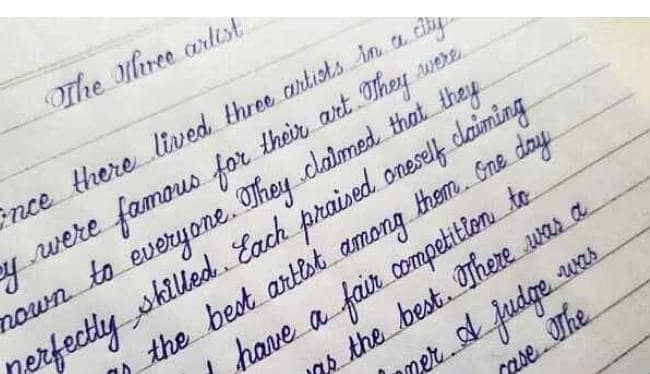 The Three artist
Once there lived three artists in a city
were famous for their art. They were
to everyone. They claimed that they
perfectly skilled. Each praised oneself claiming
the best artist among them. One day
have a fair competition to
the best. There was a
A judge was
case. The